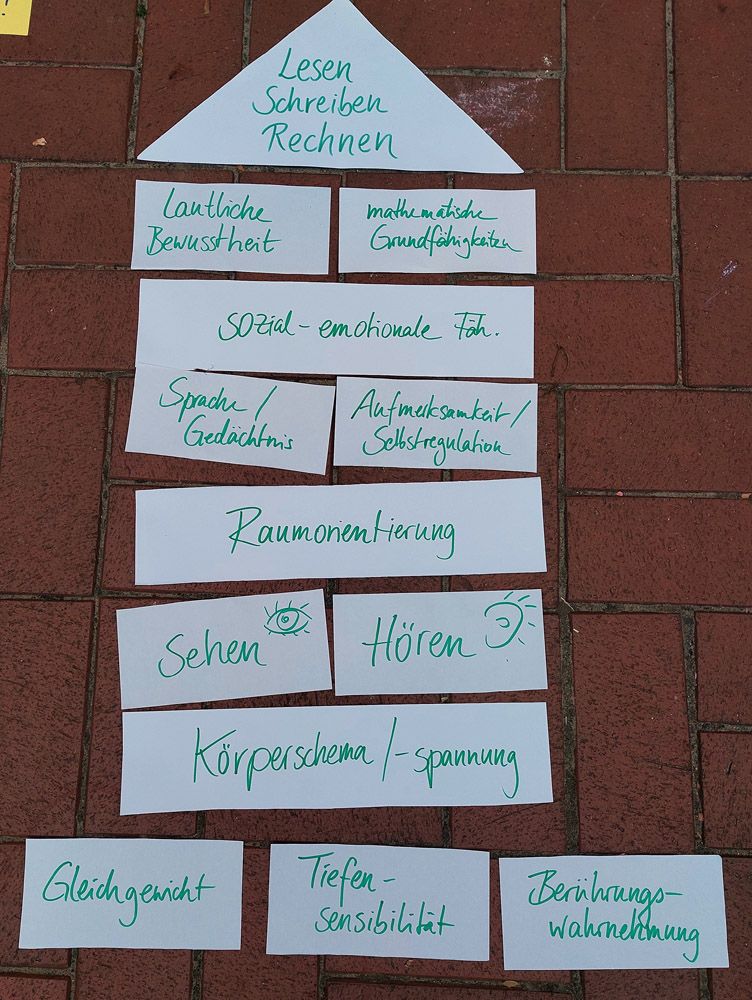 Lesen
Schreiben
Rechnen
Lautliche
Bewusstheit
mathematische
Grundfähigkeiten
sozial-emotionale Fäh.
Sprache/
Gedächtnis
Aufmerksamkeit/
Selbstregulation
Raumorientierung
Sehen
Hören
Körperschema/-spannung
Gleichgewicht
Tiefen-
sensibilität
Berührungs-
wahrnehmung